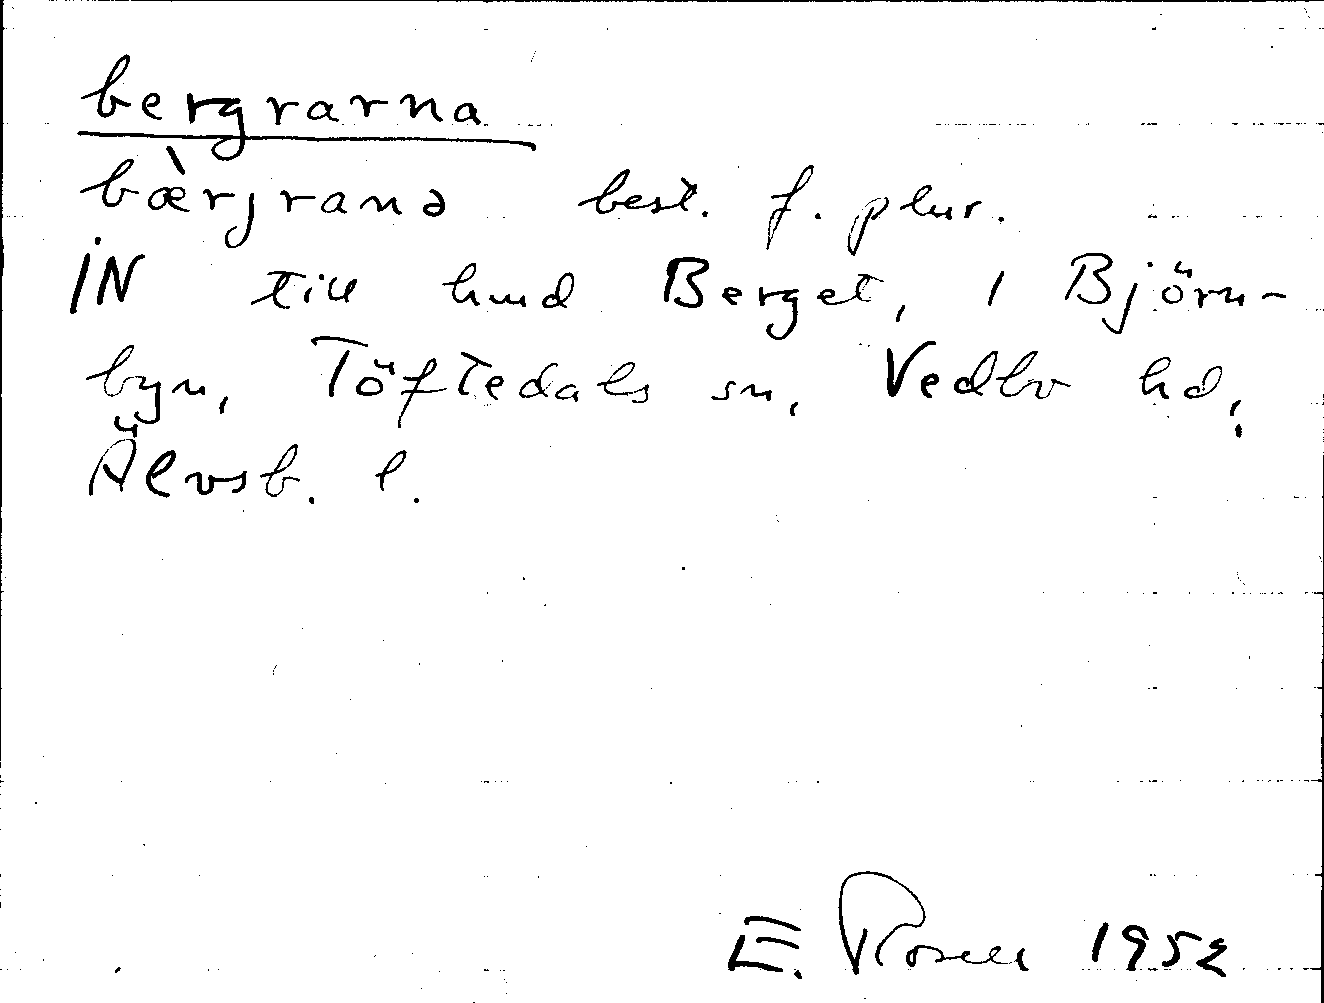 bergrarna
bæ̀rjranə best. f. plur.
IN till hmd Berget, 1 Björn-
byn, Töftedals sn, Vedbo hd,
Älvsb. l.
E. Rosell 1952